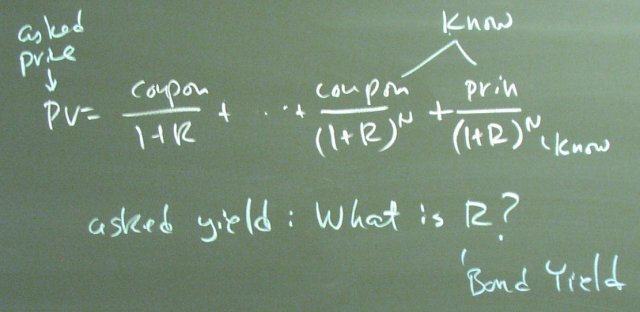 asked
price
know
PV = coupon/(1+R) + ... + coupon/(1+R)^N + prin/(1+R)^N
know
asked yield: What is R?
Bond Yield